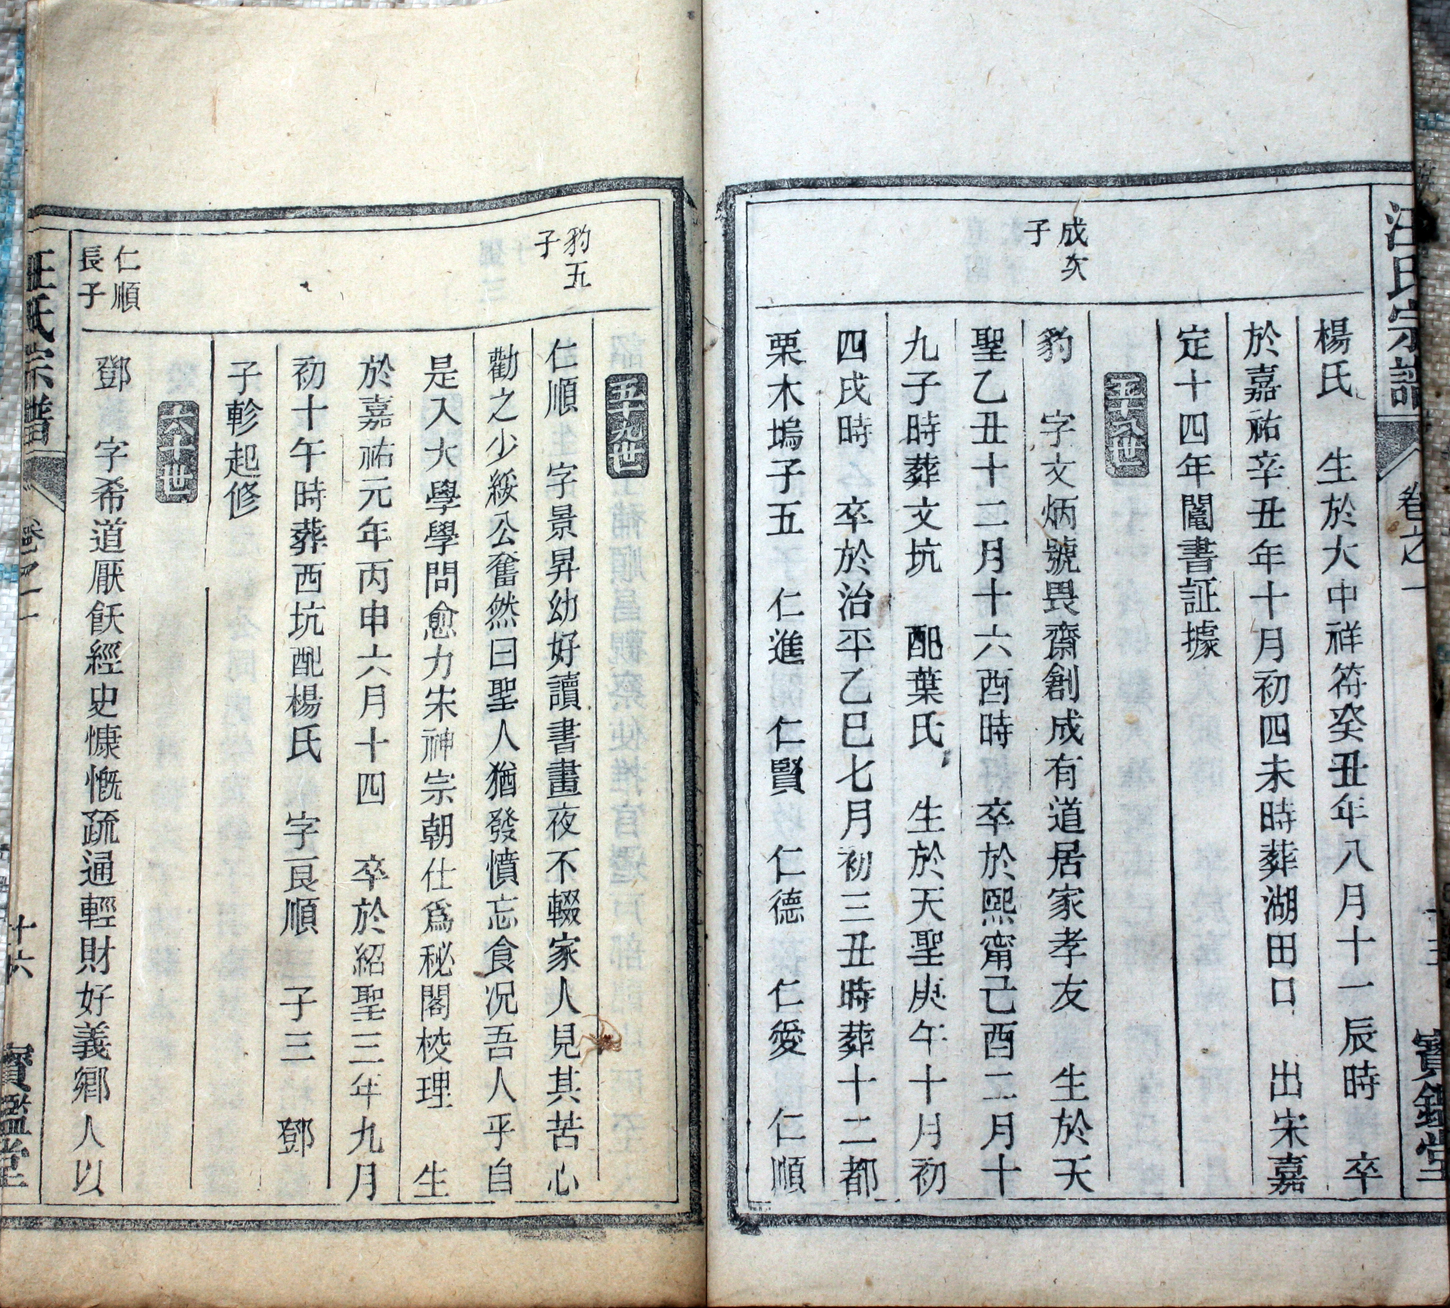 汪氏宗譜
卷之一
寶鑑堂
楊氏 生於大中祥符癸丑年八月十一辰時 卒
於嘉祐辛丑年十月初四未時葬湖田口 出宋嘉
定十四年鬮書証據
五十八世
成次
子
豹 字文炳號畏齋創成有道居家孝友 生於天
聖乙丑十二月十六酉時 卒於熙甯己酉二月十
九子時葬文坑 配葉氏 生於天聖庚午十月初
四戌時 卒於治平乙巳七月初三丑時葬十二都
栗木塢子五 仁進 仁賢 仁德 仁愛 仁順
五十九世
豹五
子
仁順 字景昇幼好讀書晝夜不輟家人見其苦心
勸之少綏公奮然曰聖人猶發憤忘食况吾人乎自
是入大學學問愈力宋神宗朝仕爲秘閣校理 生
於嘉祐元年丙申六月十四 卒於紹聖三年九月
初十午時葬西坑配楊氏 字艮順 子三 鄧
子軫起修
六十世
仁順
長子
鄧 字希道厭飫經史慷慨疏通輕財好義鄉人以
汪氏宗譜
卷之一
十六
寶鑑堂